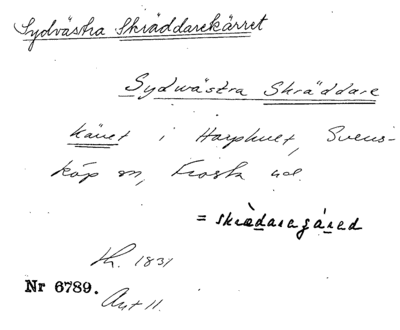 Sydvästra Skräddarekärret
Sydwästra Skräddare
kärret i Harphult, Svens-
köp sn, Frosta hd.
= skrɑ̀daragɑ́red
Nr 6789.